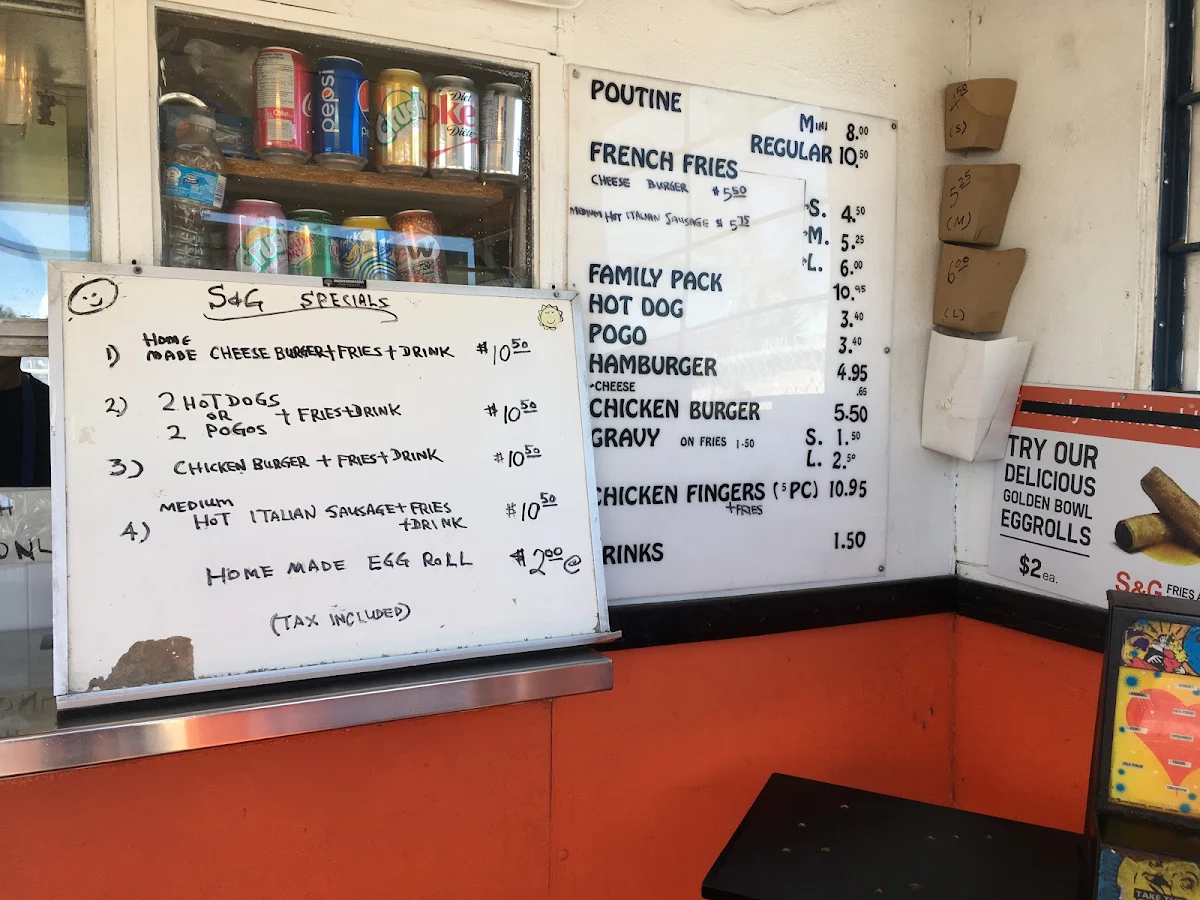 pepsi
Crush
Diet
Coke
Diet
Crush
S&G SPECIALS
1) HOME MADE CHEESE BURGER + FRIES + DRINK $10.50
2) 2 HOT DOGS
OR + FRIES + DRINK $10.50
2 POGOS
3) CHICKEN BURGER + FRIES + DRINK $10.50
4) MEDIUM HOT ITALIAN SAUSAGE + FRIES $10.50
+ DRINK
HOME MADE EGG ROLL $2.00 @
(TAX INCLUDED)
POUTINE
MINI 8.00
REGULAR 10.50
FRENCH FRIES
CHEESE BURGER $5.50
S. 4.50
MEDIUM HOT ITALIAN SAUSAGE $5.75
M. 5.25
L. 6.00
FAMILY PACK 10.95
HOT DOG 3.40
POGO 3.40
HAMBURGER 4.95
-CHEESE .65
CHICKEN BURGER 5.50
GRAVY ON FRIES 1.50 S. 1.50
L. 2.50
CHICKEN FINGERS (5 PC) 10.95
+FRIES
RINKS 1.50
4.50
(S)
5.25
(M)
6.00
(L)
TRY OUR
DELICIOUS
GOLDEN BOWL
EGGROLLS
$2 ea.
S&G FRIES